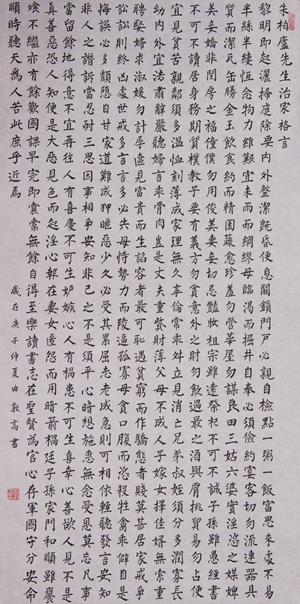 朱柏廬先生治家格言
黎明即起灑掃庭除要內外整潔既昏便息關鎖門戶必親自檢點一粥一飯當思來處不易
半絲半縷恆念物力維艱宜未雨而綢繆毋臨渴而掘井自奉必須儉約宴客切勿流連器具
質而潔瓦缶勝金玉飲食約而精園蔬愈珍羞勿營華屋勿謀良田三姑六婆實淫盜之媒婢
美妾嬌非閨房之福僮僕勿用俊美妻妾切忌豔妝祖宗雖遠祭祀不可不誠子孫雖愚經書
不可不讀居身務期質樸教子要有義方勿貪意外之財勿飲過量之酒與肩挑貿易勿占便
宜見貧苦親鄰須多溫恤刻薄成家理無久享倫常乖舛立見消亡兄弟叔姪須分多潤寡長
幼內外宜法肅辭嚴聽婦言乖骨肉豈是丈夫重貲財薄父母不成人子嫁女擇佳婿無索重
聘娶婦求淑媛勿計厚奩見富貴而生諂容者最可恥遇貧窮而作驕態者賤莫甚居家戒爭
訟訟則終凶處世戒多言言多必失毋恃勢力而陵逼孤寡毋貪口腹而恣殺牲禽乖僻自是
悔誤必多頹隳自甘家道難成狎暱惡少久必受其累屈志老成急則可相依輕聽發言安知
非人之譖訴當忍耐三思因事相爭安知非己之不是須平心暗想施惠無念受恩莫忘凡事
當留餘地得意不宜再往人有喜慶不可生妒嫉心人有禍患不可生喜幸心善欲人見不是
真善惡恐人知便是大惡見色而起淫心報在妻女匿怨而用暗箭禍延子孫家門和順雖饔
飧不繼亦有餘歡國課早完即囊橐無餘自得至樂讀書志在聖賢為官心存軍國守分安命
順時聽天為人若此庶乎近焉
歲在庚子仲夏由敦高書